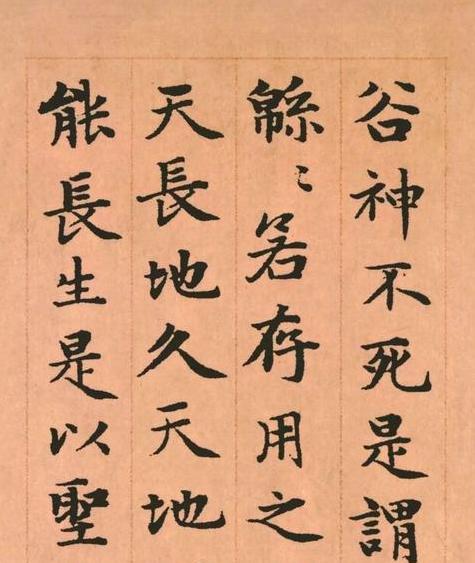 谷神不死是謂
緜〻若存用之
天長地久天地
能長生是以聖